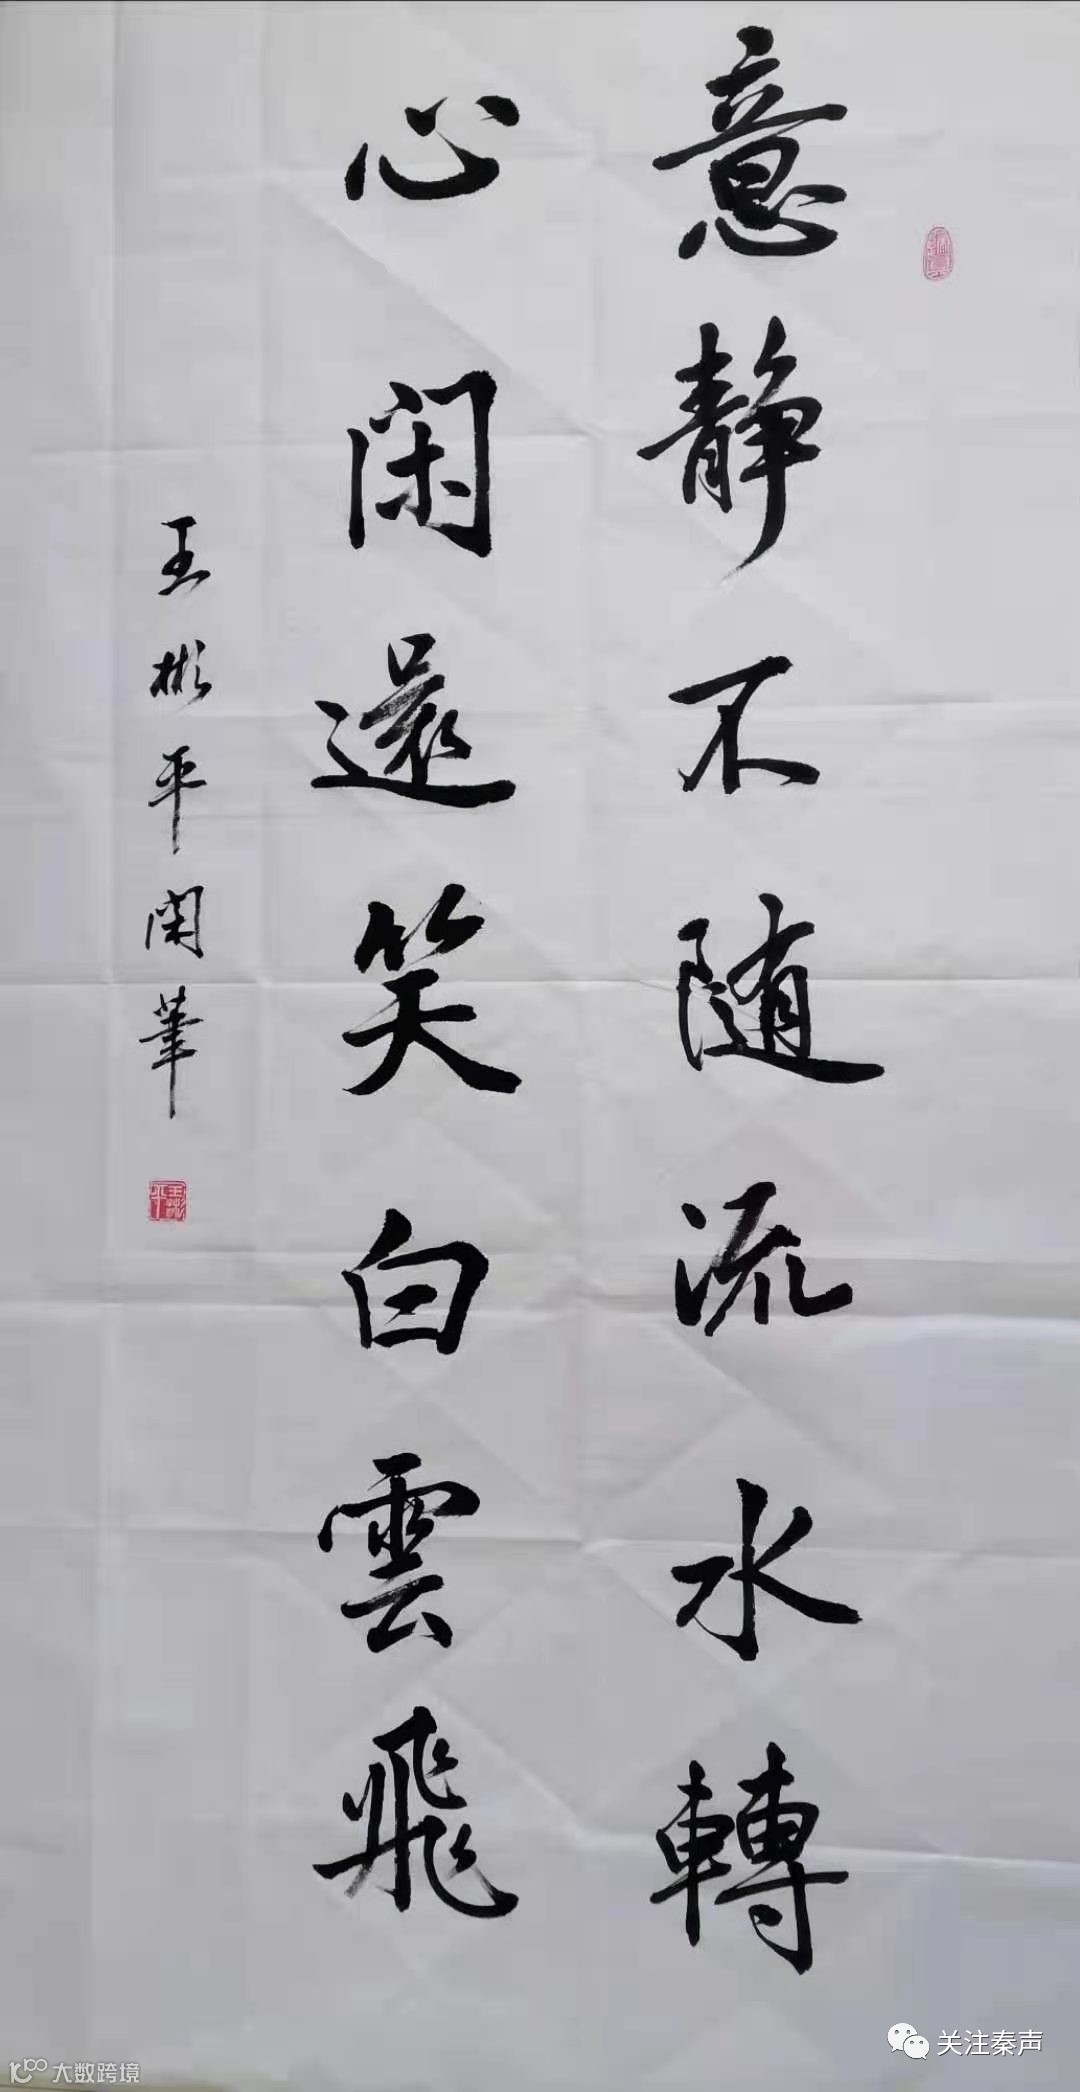 意静不随流水轉
心闲還笑白雲飛
王彬平闲筆
王彬平
关注秦声
大数跨境